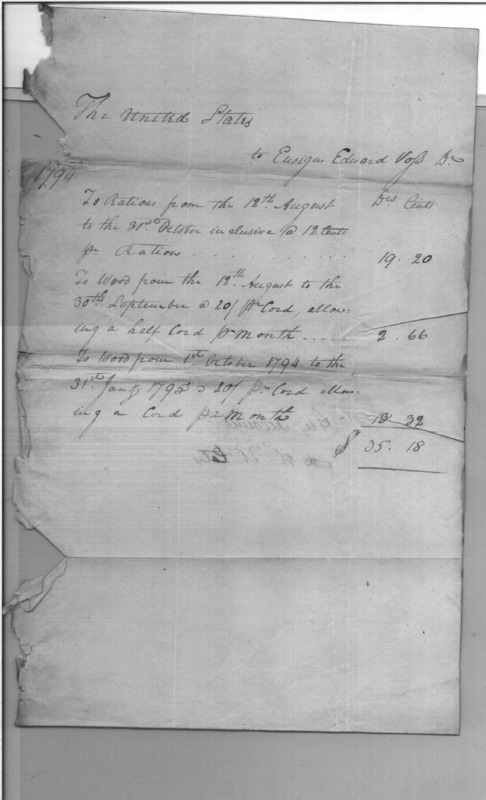 The United States
to Ensign Edward Voss Dr
1794
Drs Cents
To Rations from the 18th August
to the 31st October inclusive @ 12 Cents
pr Ration . . . . . . . . . 19. 20
To Wood from the 18th August to the
30th September @ 20/ pr Cord, allow-
ing a half Cord pr Month . . . . 2. 66
To Wood from 1st October 1794 to the
31st Jany 1795 @ 20/ pr Cord allow-
ing a Cord pr Month 13 32
$ 35. 18